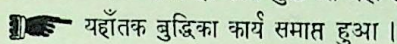 यहाँतक बुद्धिका कार्य समाप्त हुआ।